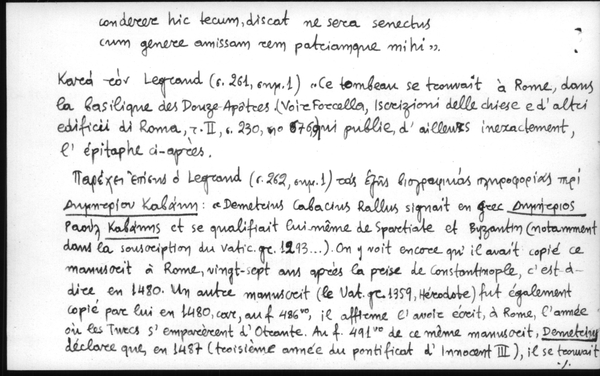 conderer hic tecum, discat ne sera senectus
cum genere amissam rem patriamque mihi».
Κατά τόν Legrand (σ. 261, σημ. 1) «Ce tombeau se trouvait à Rome, dans
la basilique des Douze-Apôtres (Voir Forcella, Iscrizioni delle chiese e d'altri
edificii di Roma, τ. II, σ. 230, no 676) qui publie, d'ailleurs inexactement,
l'épitaphe ci-après.
Παρέχει ἐπίσης ὁ Legrand (σ. 262, σημ. 1) τάς ἑξῆς βιογραφικάς πληροφορίας περί
Δημητρίου Καβάκη: «Demetrius Cabacius Rallus signait en grec Δημήτριος
Ραούλ Καβάκης et se qualifiait lui-même de Spartiate et Byzantin (notamment
dans la souscription du Vatic. gr. 1293...). On y voit encore qu'il avait copié ce
manuscrit à Rome, vingt-sept ans après la prise de Constantinople, c'est-à-
dire en 1480. Un autre manuscrit (le Vat. gr. 1359, Hérodote) fut également
copié par lui en 1480, car, au f. 486vo, il affirme l'avoir écrit, à Rome, l'année
où les Turcs s'emparèrent d'Otrante. Au f. 491vo de ce même manuscrit, Demetrius
déclare que, en 1487 (troisième année du pontificat d'Innocent III), il se trouvait
./.